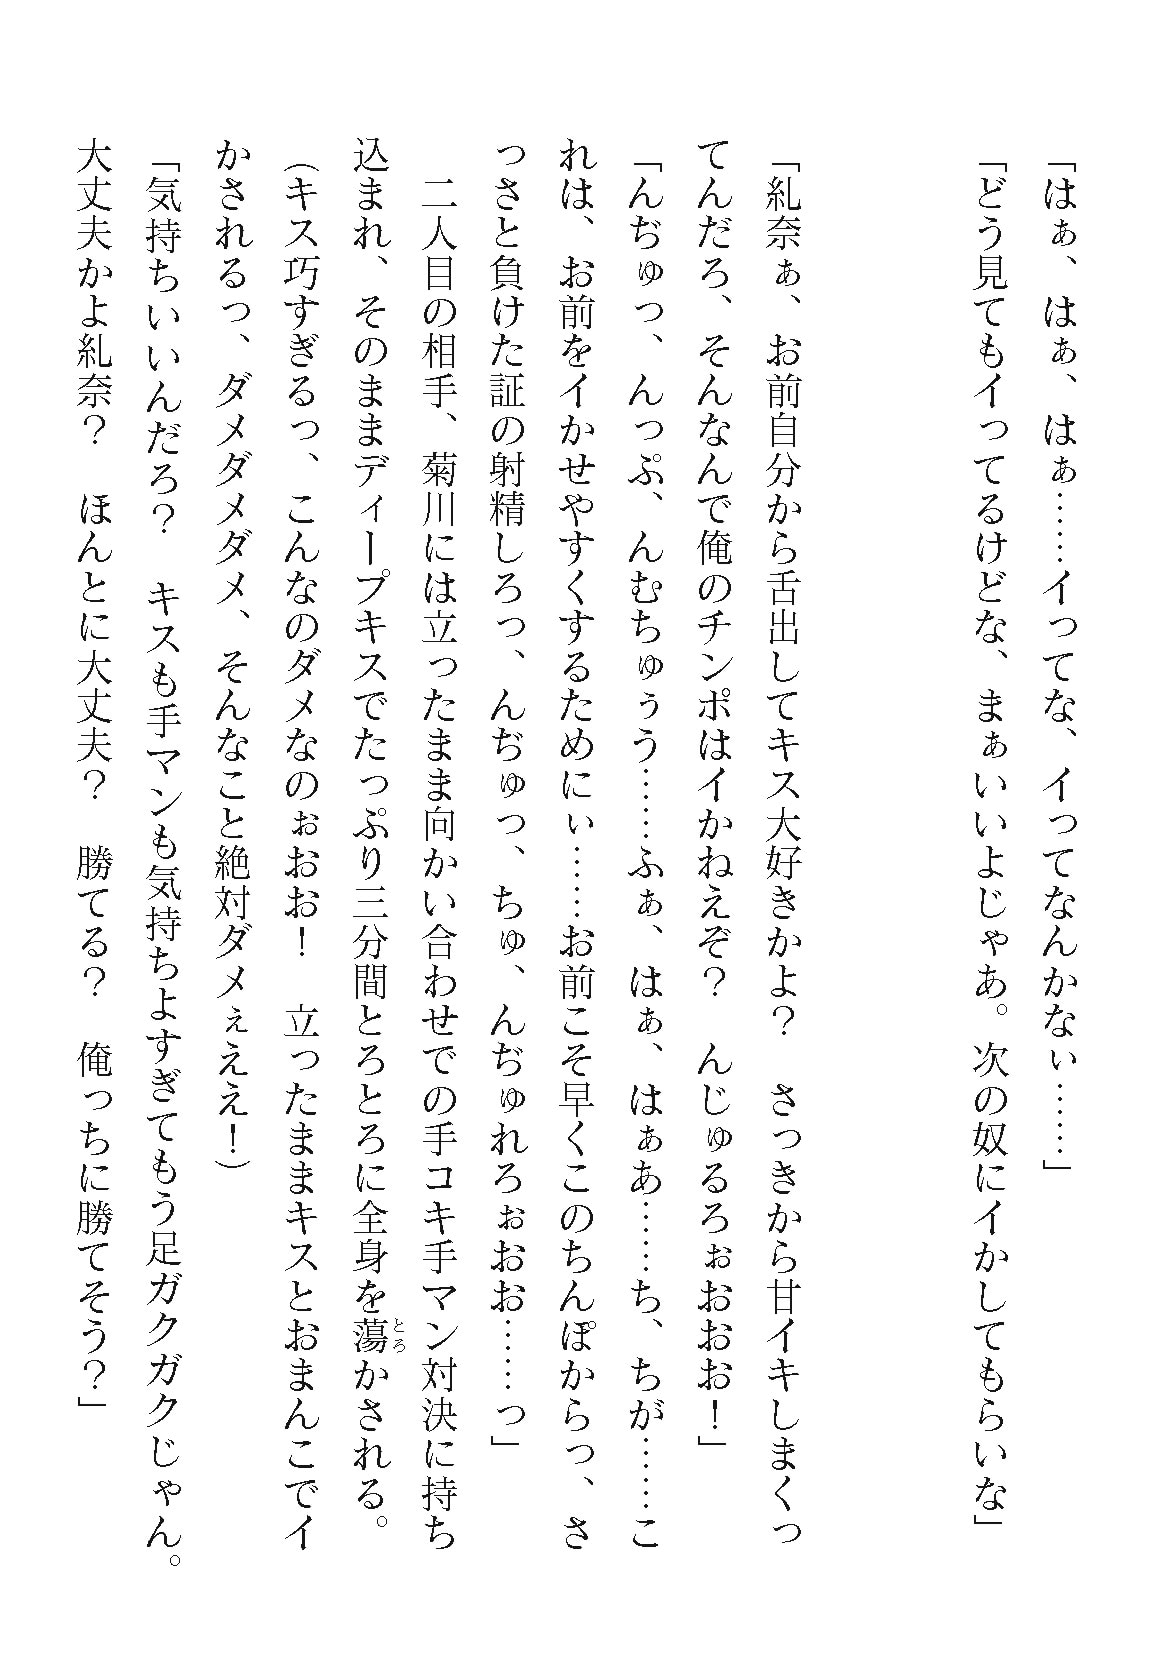 「はぁ、はぁ、はぁ……イってな、イってなんかなぃ……」
「どう見てもイってるけどな、まぁいいよじゃあ。次の奴にイかしてもらいな」
「糺奈ぁ、お前自分から舌出してキス大好きかよ？　さっきから甘イキしまくっ
てんだろ、そんなんで俺のチンポはイかねえぞ？　んじゅるろぉおおお！」
「んぢゅっ、んっぷ、んむちゅぅう……ふぁ、はぁ、はぁあ……ち、ちが……こ
れは、お前をイかせやすくするためにぃ……お前こそ早くこのちんぽからっ、さ
っさと負けた証の射精しろっ、んぢゅっ、ちゅ、んぢゅれろぉおお……っ」
　二人目の相手、菊川には立ったまま向かい合わせでの手コキ手マン対決に持ち
込まれ、そのままディープキスでたっぷり三分間とろとろに全身を蕩とろかされる。
（キス巧すぎるっ、こんなのダメなのぉおお！　立ったままキスとおまんこでイ
かされるっ、ダメダメダメ、そんなこと絶対ダメぇええ！）
「気持ちいいんだろ？　キスも手マンも気持ちよすぎてもう足ガクガクじゃん。
大丈夫かよ糺奈？　ほんとに大丈夫？　勝てる？　俺っちに勝てそう？」